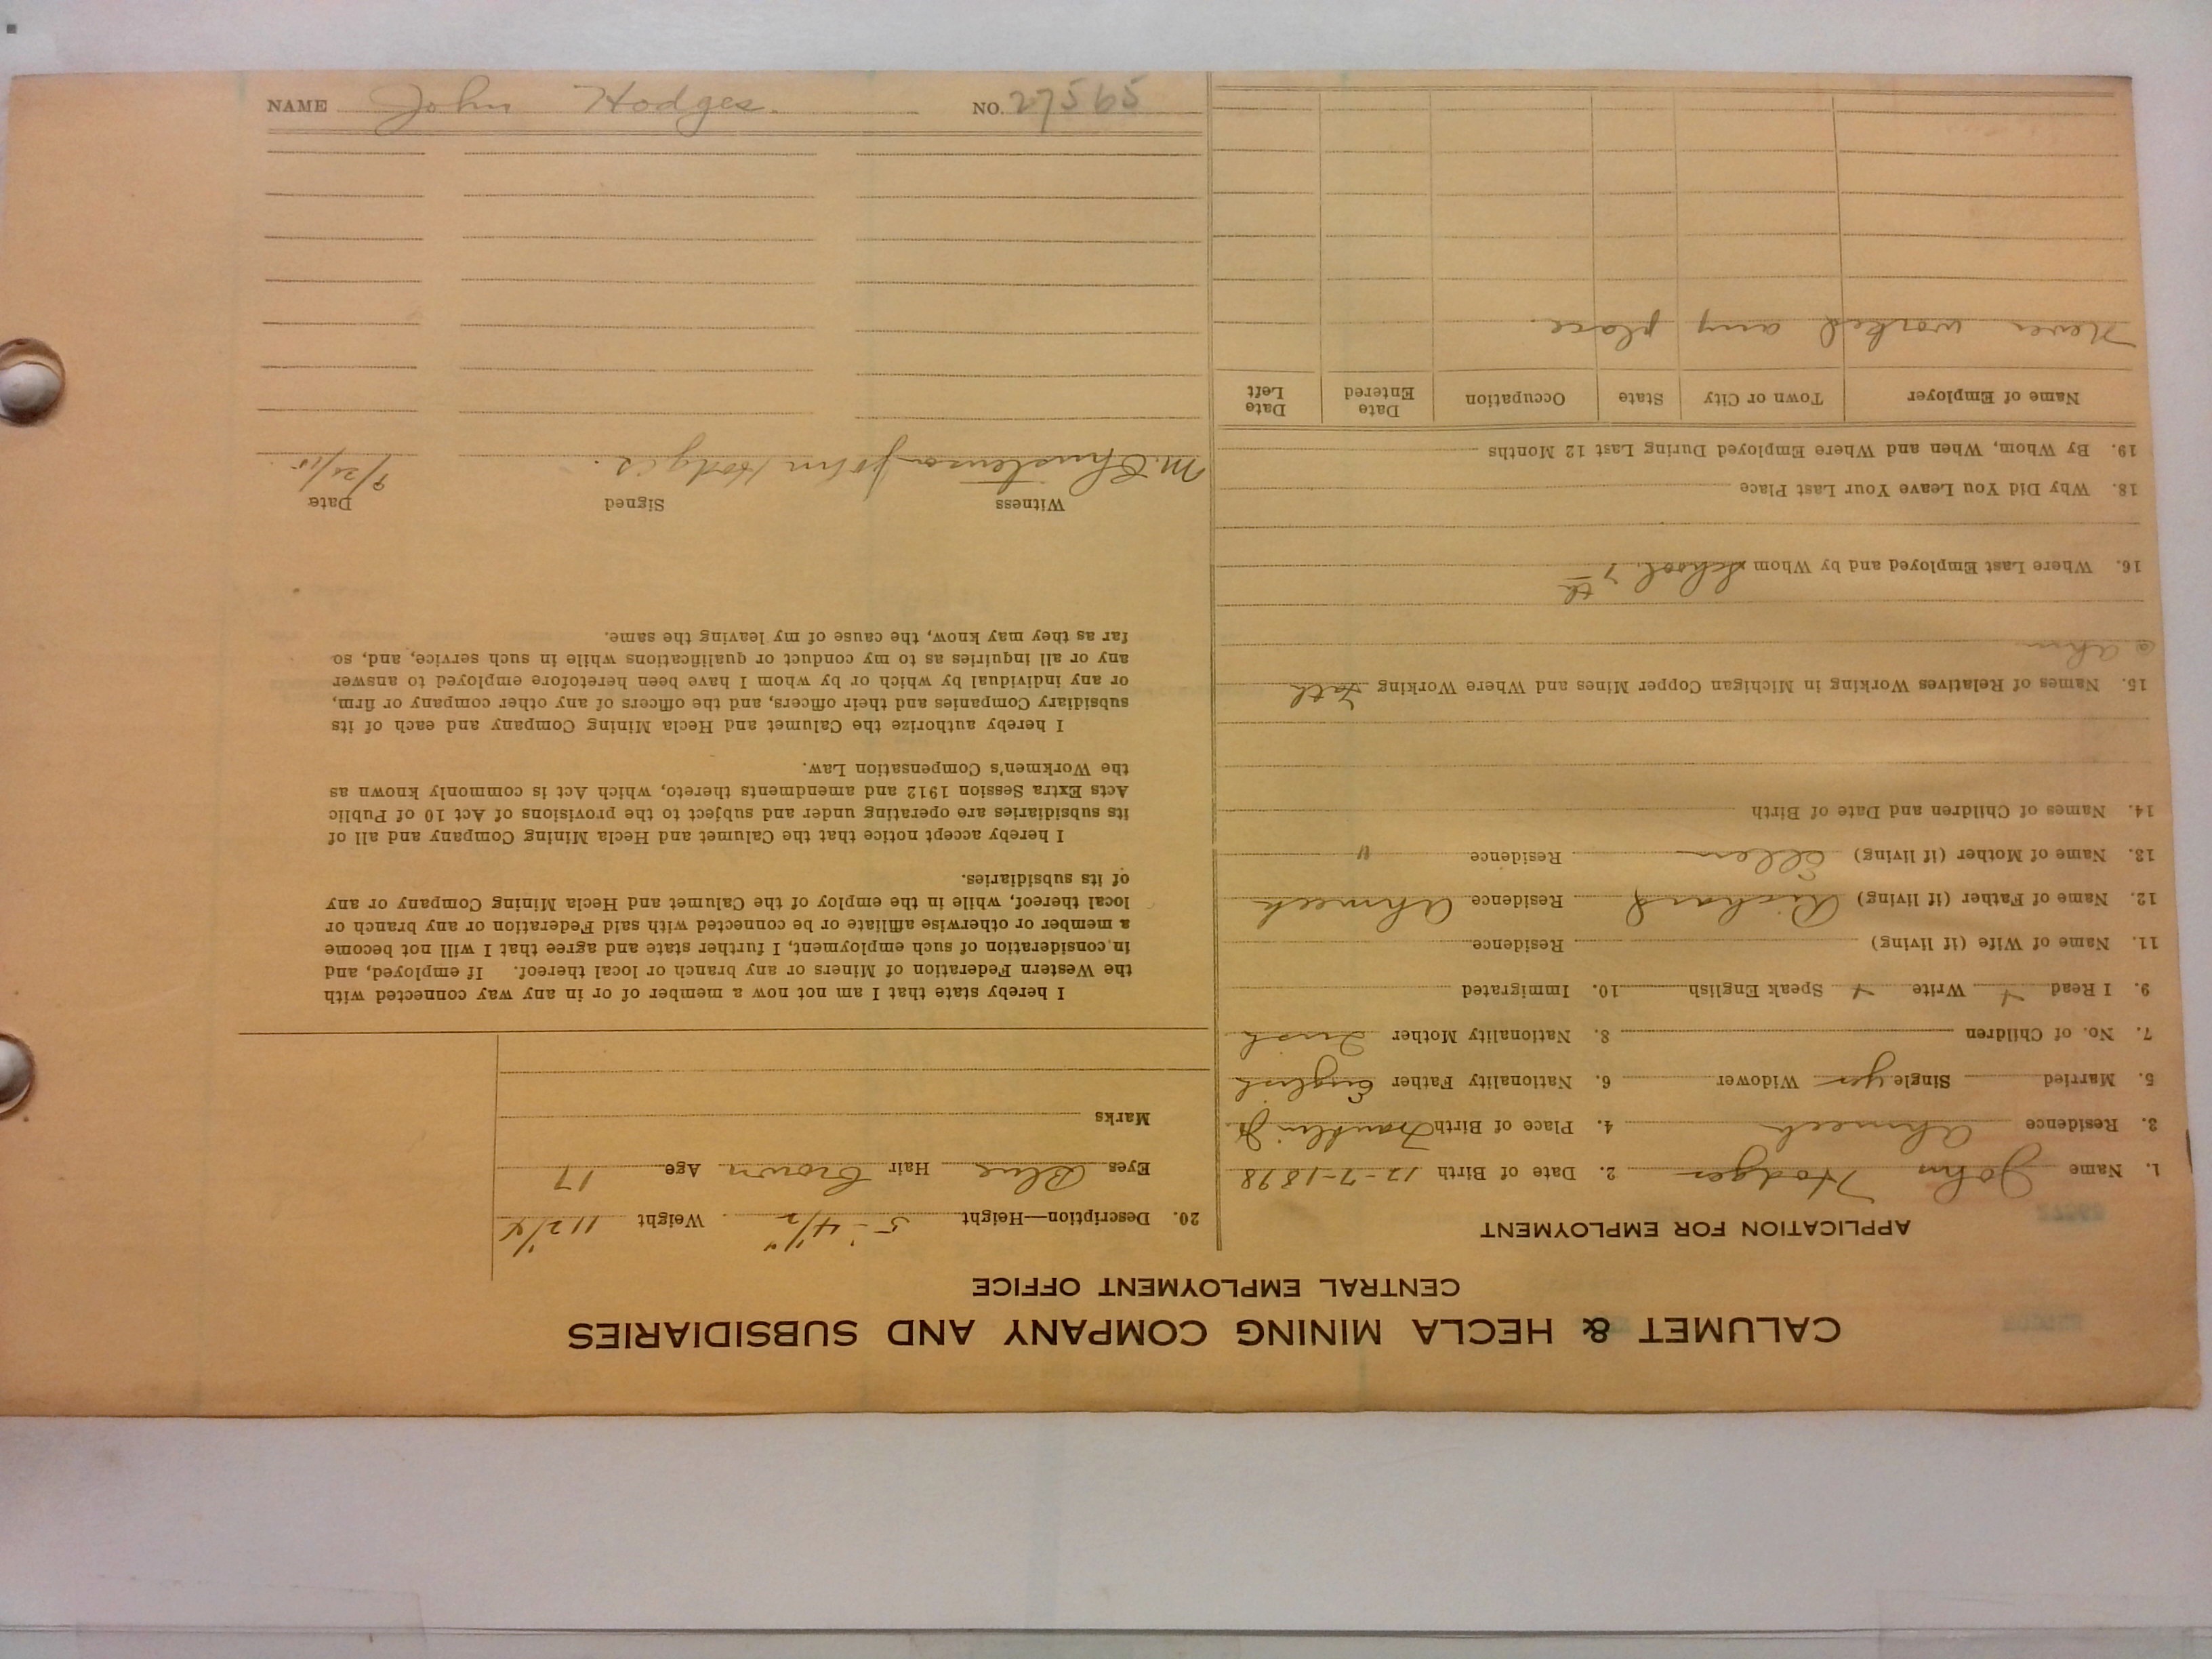 NAME John Hodges. NO. 27565
CALUMET & HECLA MINING COMPANY AND SUBSIDIARIES
CENTRAL EMPLOYMENT OFFICE
APPLICATION FOR EMPLOYMENT
1. Name John Hodges 2. Date of Birth 12-7-1898
3. Residence Ahmeek 4. Place of Birth Franklin Jr.
5. Married Single yes Widower 6. Nationality Father English
7. No. of Children 8. Nationality Mother Irish
9. I Read + Write + Speak English 10. Immigrated
11. Name of Wife (if living) Residence
12. Name of Father (if living) Richard Residence Ahmeek
13. Name of Mother (if living) Ellen Residence "
14. Names of Children and Date of Birth
15. Names of Relatives Working in Michigan Copper Mines and Where Working Fath
@ Ahm
16. Where Last Employed and by Whom School. 7th
18. Why Did You Leave Your Last Place
19. By Whom, When and Where Employed During Last 12 Months
Name of Employer Town or City State Occupation Date Entered Date Left
Never worked any place.
20. Description—Height 5-4 1/2" Weight 112 1/4
Eyes Blue Hair Brown Age 17
Marks
I hereby state that I am not now a member of or in any way connected with
the Western Federation of Miners or any branch or local thereof. If employed, and
in consideration of such employment, I further state and agree that I will not become
a member or otherwise affiliate or be connected with said Federation or any branch or
local thereof, while in the employ of the Calumet and Hecla Mining Company or any
of its subsidiaries.
I hereby accept notice that the Calumet and Hecla Mining Company and all of
its subsidiaries are operating under and subject to the provisions of Act 10 of Public
Acts Extra Session 1912 and amendments thereto, which Act is commonly known as
the Workmen's Compensation Law.
I hereby authorize the Calumet and Hecla Mining Company and each of its
subsidiary Companies and their officers, and the officers of any other company or firm,
or any individual by which or by whom I have been heretofore employed to answer
any or all inquiries as to my conduct or qualifications while in such service, and, so
far as they may know, the cause of my leaving the same.
Witness Signed Date
M. Christenson John Hodges.